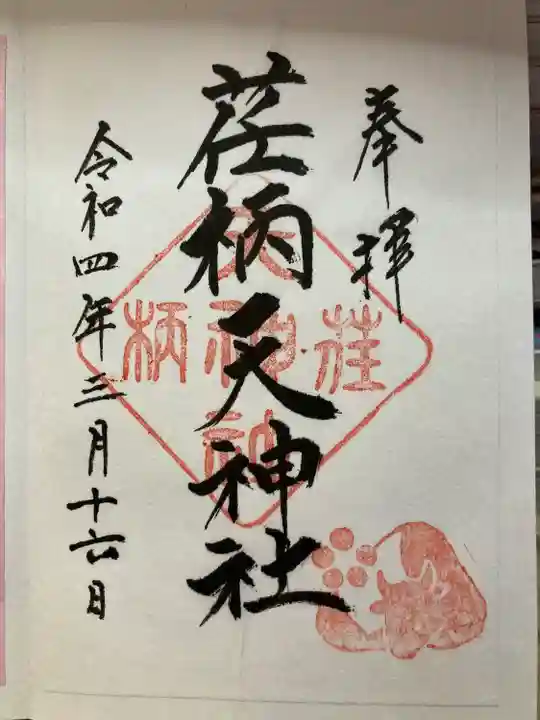 奉拝
荏柄天神社
令和四年三月十六日
荏柄天神社